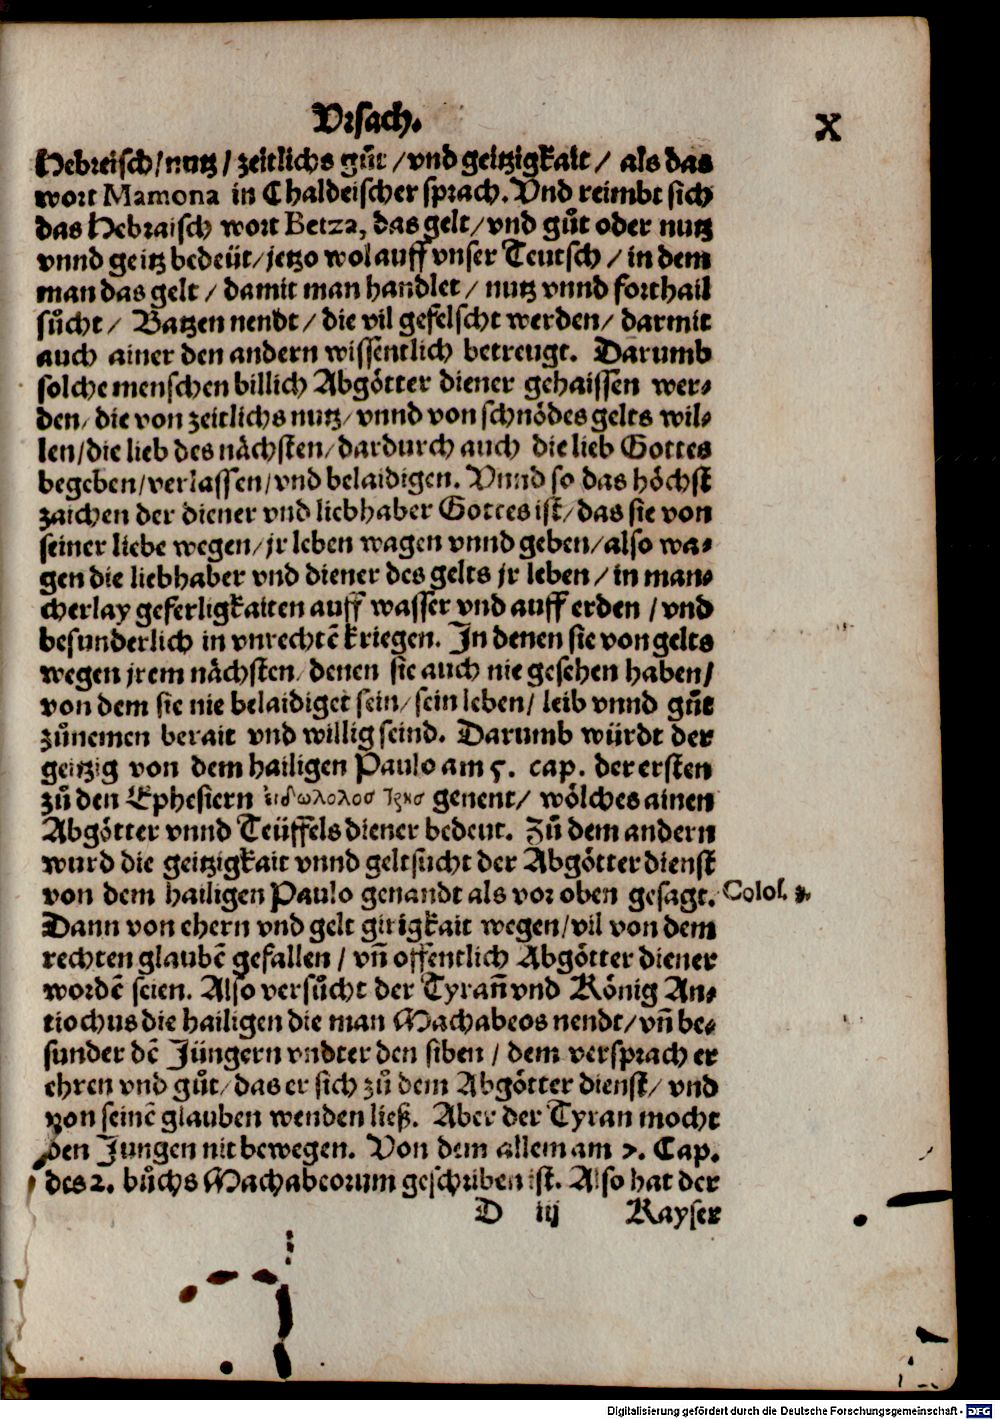 Vrsach.
X
Hebreisch/nutz/ zeitlichs gůt /vnd geitzigkait/ als das
wort Mamona in Chaldeischer sprach. Vnd reimbt sich
das Hebraisch wort Betza, das gelt/vnd gůt oder nutz
vnnd geitz bedeüt/jetzo wol auff vnser Teutsch / in dem
man das gelt / damit man handlet / nutz vnnd forthail
sůcht/ Batzen nendt / die vil gefelscht werden/ darmit
auch ainer den andern wissentlich betreugt. Darumb
solche menschen billich Abgötter diener gehaissen wer⸗
den/ die von zeitlichs nutz/ vnnd von schnödes gelts wil⸗
len/die lieb des nächsten/dardurch auch die lieb Gottes
begeben/verlassen/vnd belaidigen. Vnnd so das höchst
zaichen der diener vnd liebhaber Gottes ist/das sie von
seiner liebe wegen/jr leben wagen vnnd geben/also wa⸗
gen die liebhaber vnd diener des gelts jr leben /in man⸗
cherlay geferligkaiten auff wasser vnd auff erden /vnd
besunderlich in vnrechtē kriegen. In denen sie von gelts
wegen jrem nächsten/denen sie auch nie gesehen haben/
von dem sie nie belaidiget sein/sein leben/ leib vnnd gůt
zůnemen berait vnd willig seind. Darumb würdt der
geitzig von dem hailigen Paulo am 5. cap. der ersten
zů den Ephesiern genent/ wölches ainen
Abgötter vnnd Teüffels diener bedeut. Zů dem andern
wurd die geitzigkait vnnd geltsucht der Abgötterdienst
von dem hailigen Paulo genandt als vor oben gesagt. Colos. 3.
Dann von ehern vnd gelt girigkait wegen/vil von dem
rechten glaubē gefallen / vñ offentlich Abgötter diener
wordē seien. Also versůcht der Tyrañ vnd König An⸗
tiochus die hailigen die man Machabeos nendt/vñ be⸗
sunder dē Jüngern vndter den siben / dem versprach er
ehren vnd gůt/das er sich zů dem Abgötter dienst/ vnd
von seinē glauben wenden ließ. Aber der Tyran mocht
den Jungen nit bewegen. Von dem allem am 7. Cap.
des 2. bůchs Machabeorum geschriben ist. Also hat der
D iij Kayser
Digitalisierung gefördert durch die Deutsche Forschungsgemeinschaft - DFG